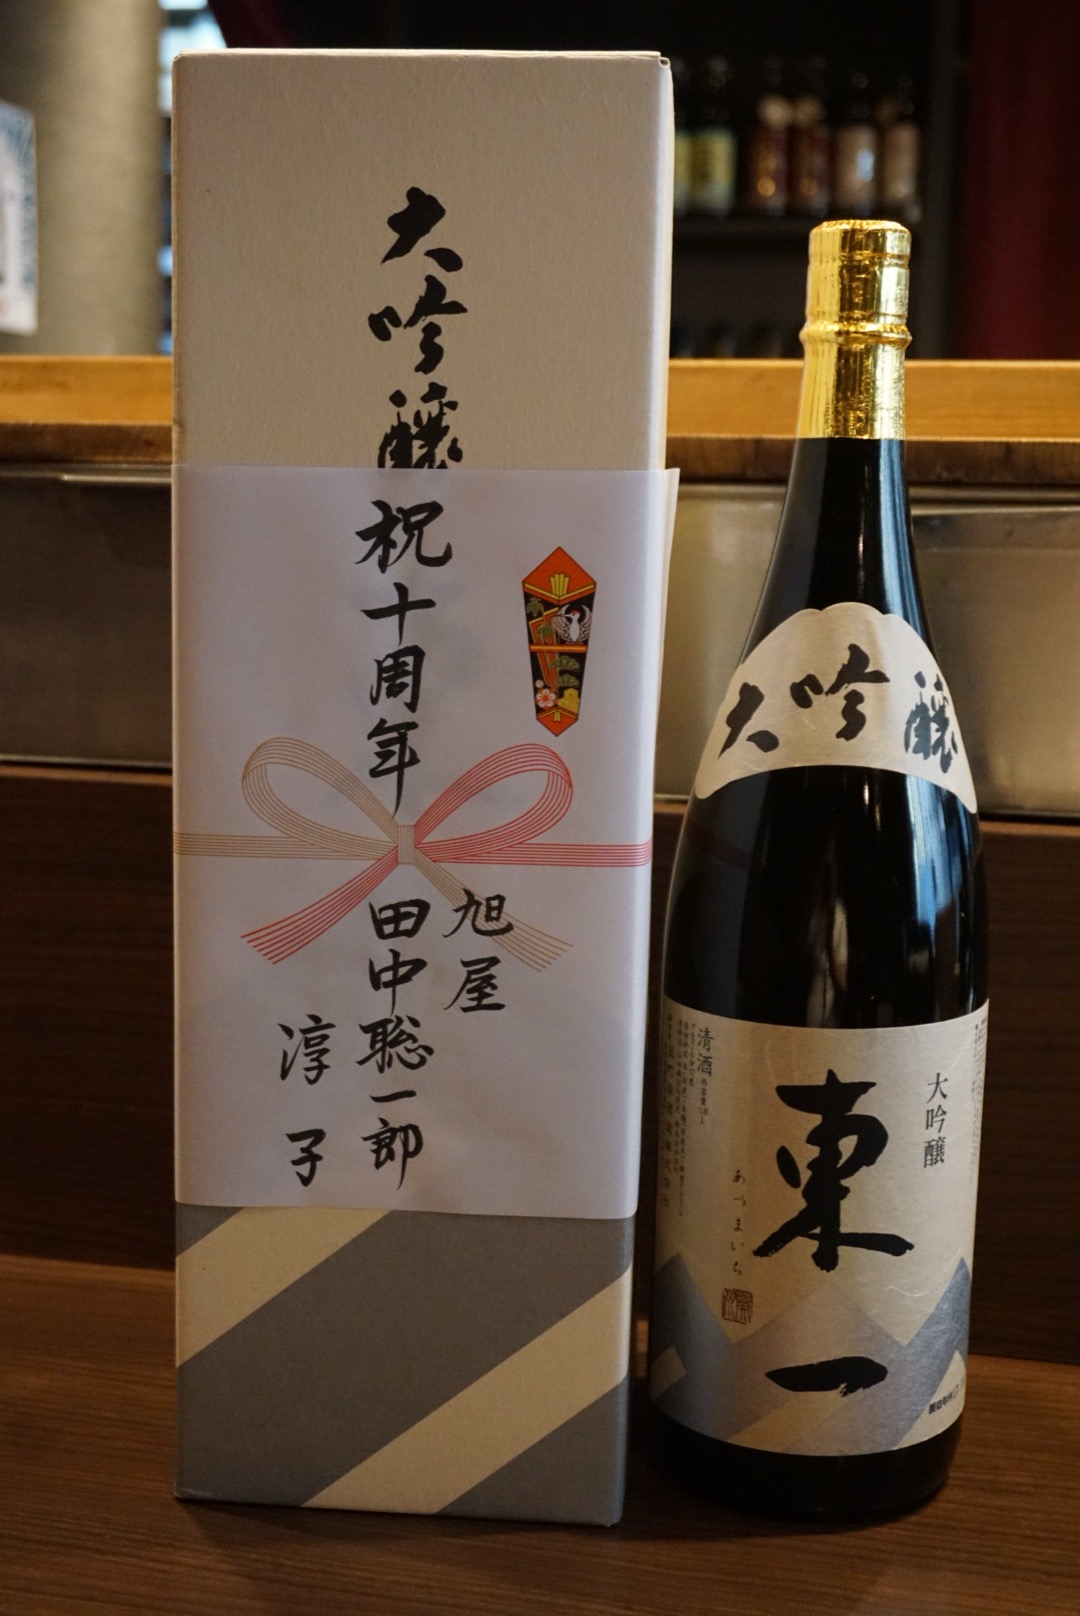 大吟醸
祝十周年
旭屋
田中聡一郎
淳子
大吟醸
大吟醸
東一
あづまいち
清酒